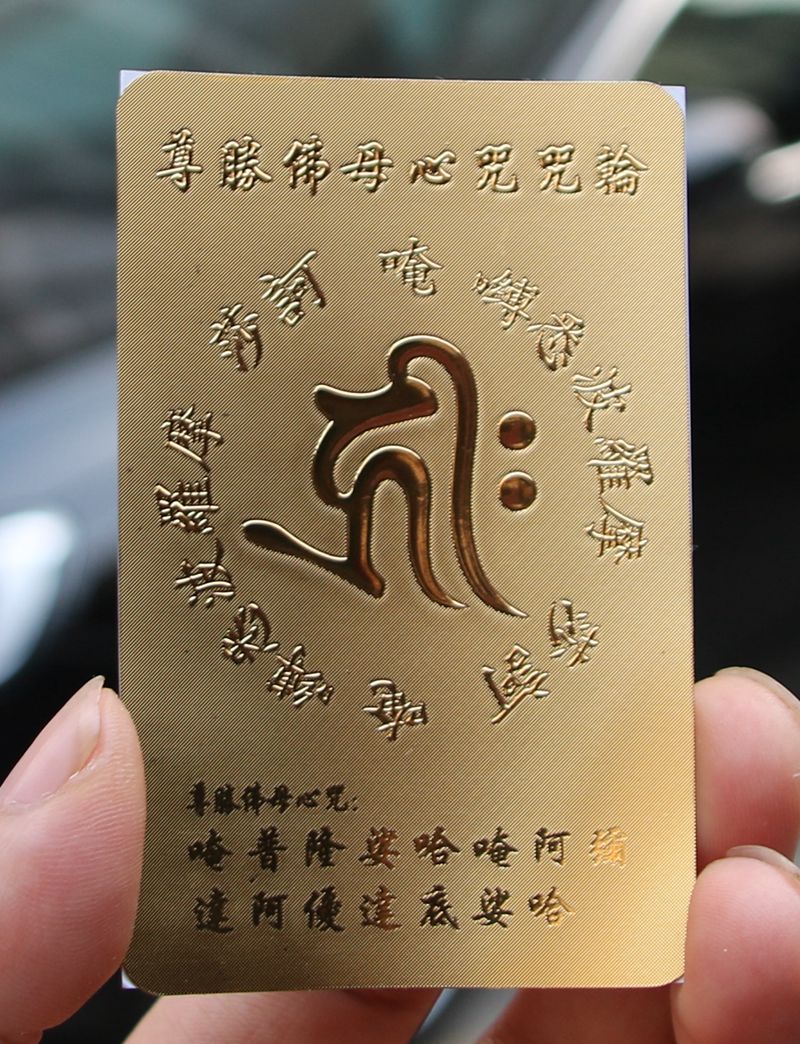 尊勝佛母心咒咒輪
唵嚩悉波羅摩莎訶
唵嚩悉波羅摩莎訶
尊勝佛母心咒:
唵普隆娑哈唵阿彌
達阿優達底娑哈